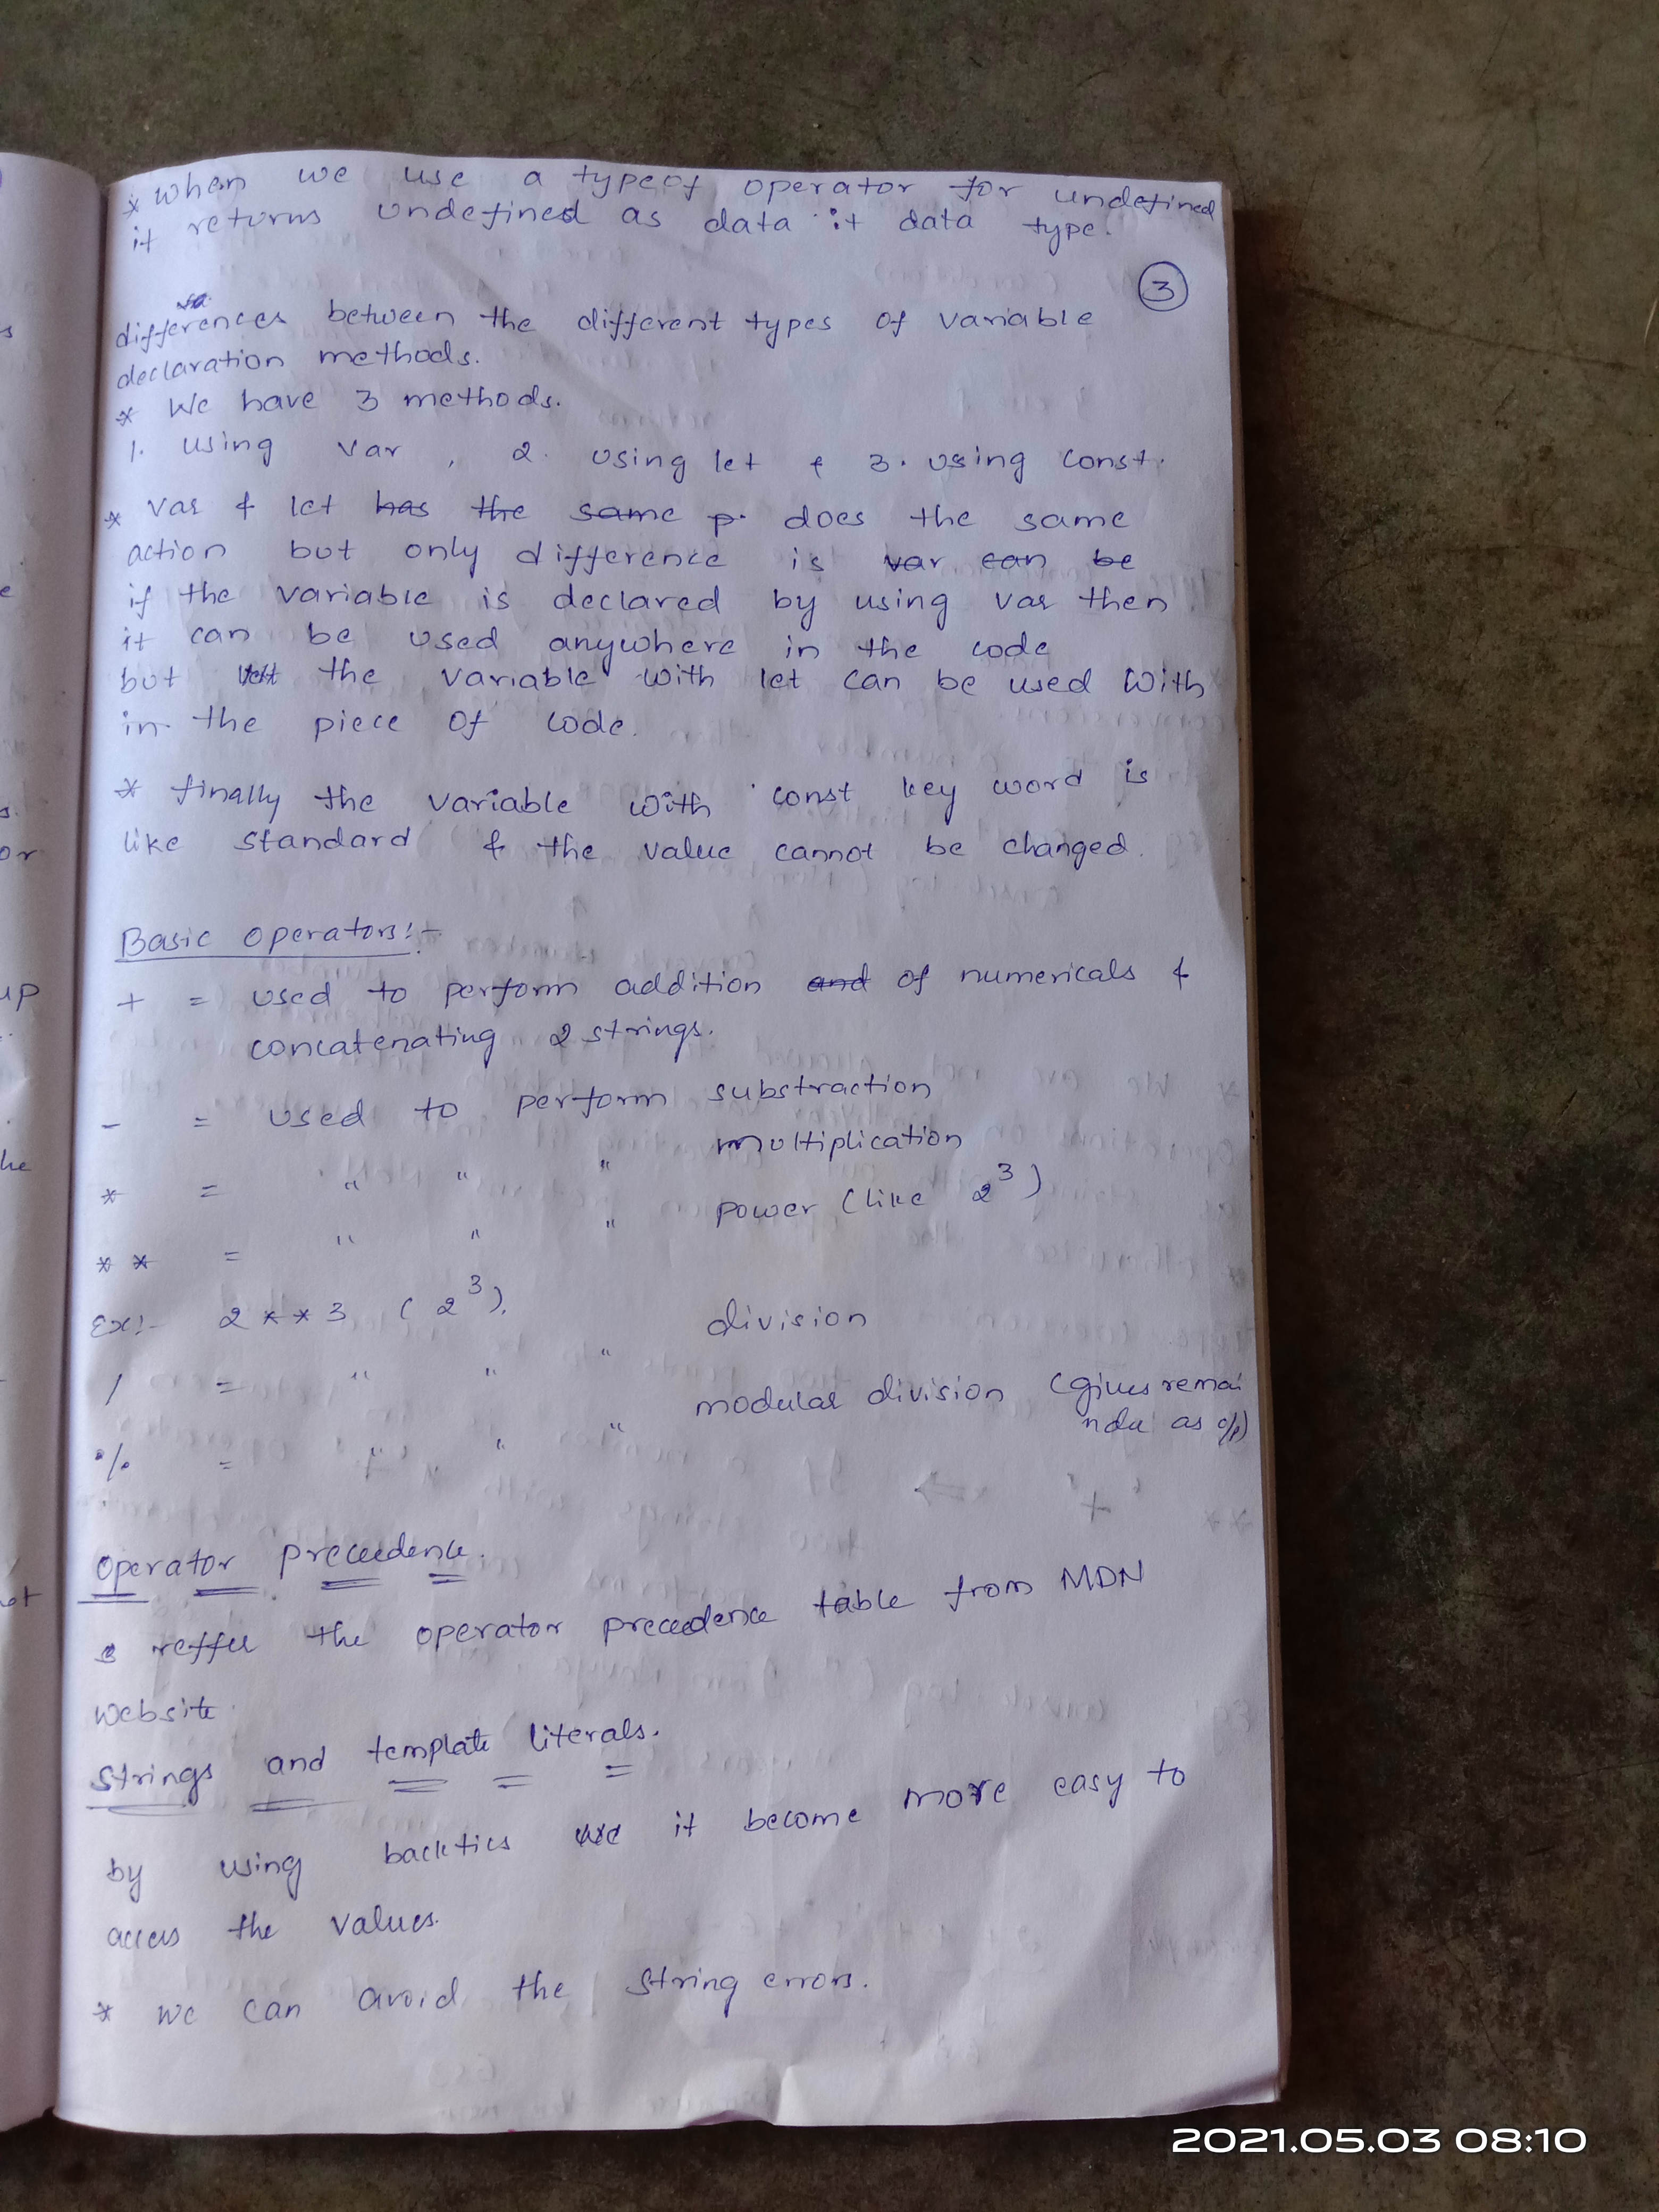 * when we use a typeof operator for undefined
it returns undefined as data it data type.
3
differences between the different types of variable
declaration methods.
* We have 3 methods.
1. using var , 2. using let & 3. using const.
* var & let has the same p. does the same
action but only difference is var can be
if the variable is declared by using var then
it can be used anywhere in the code
but the variable with let can be used with
in the piece of code.
* finally the variable with const key word is
like standard & the value cannot be changed.
Basic operators:-
+ = used to perform addition and of numericals &
concatenating 2 strings.
- = used to perform substraction
* = " " " multiplication
** = " " " power (like 2³)
Ex:- 2**3 (2³).
/ = " " " division
% = " " " modular division (gives remai
nder as o/p)
Operator preceedence.
reffer the operator preceedence table from MDN
website.
Strings and template literals.
by using backtics it become more easy to
acces the values.
* we can avoid the string errors.
up
or
he
2021.05.03 08:10